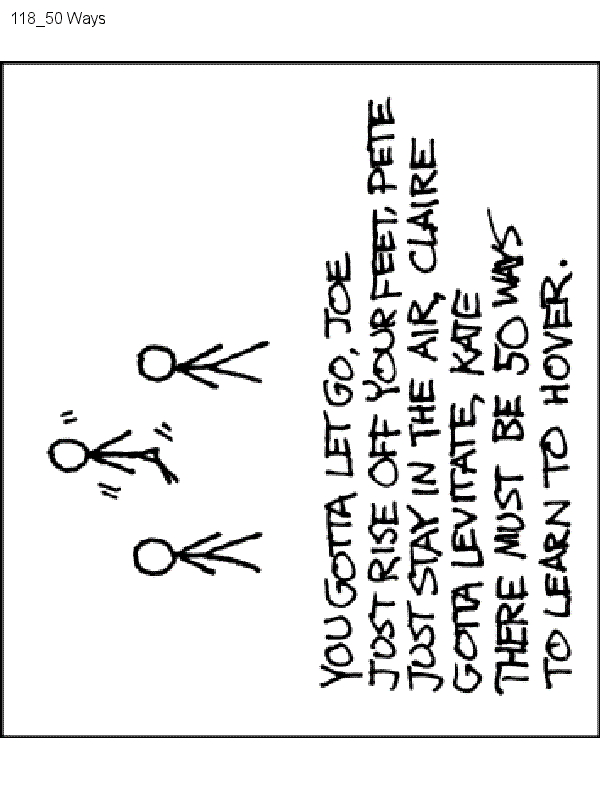 118_50 Ways
YOU GOTTA LET GO, JOE
JUST RISE OFF YOUR FEET, PETE
JUST STAY IN THE AIR, CLAIRE
GOTTA LEVITATE, KATE
THERE MUST BE 50 WAYS
TO LEARN TO HOVER.